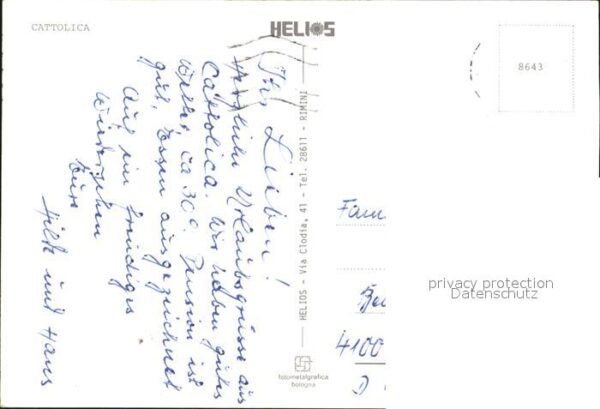 CATTOLICA
HELIOS
8643
Ihr Lieben!
Herzliche Urlaubsgrüsse aus
Cattolica. Wir haben gutes
Wetter, ca 30° Pension ist
gut, Essen ausgezeichnet
Auf ein freudiges
Wiedersehen
Eure
Hilde und Hans
HELIOS - Via Clodia, 41 - Tel. 28611 - RIMINI
Fam
4100
D
privacy protection
Datenschutz
fotometalgrafica
bologna